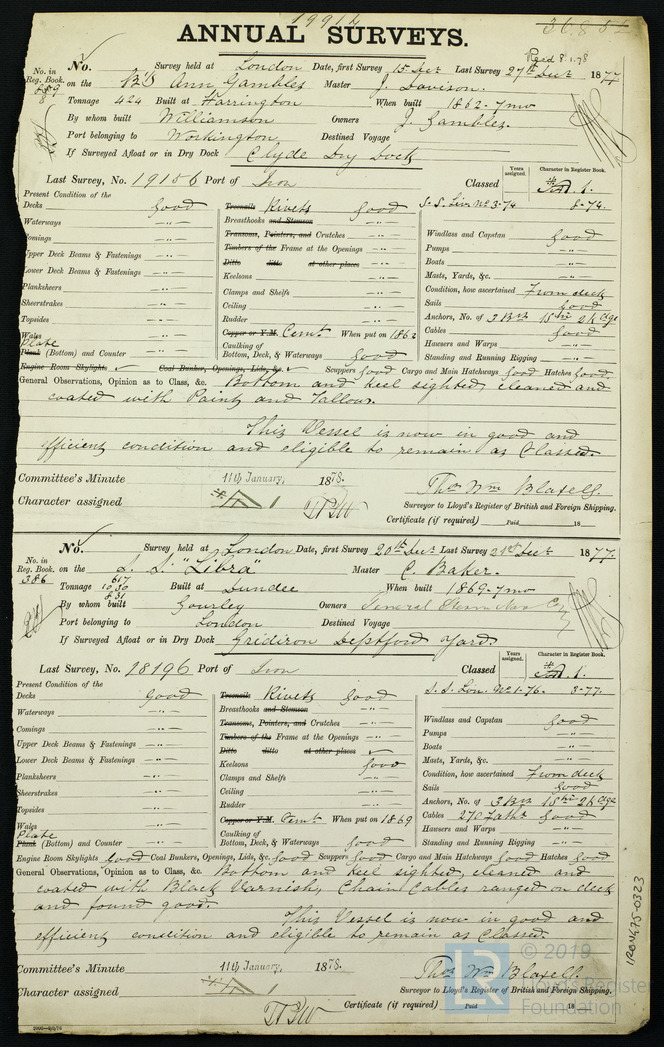 19912
36.8.52
ANNUAL SURVEYS.
Recd 8.1.78
No. Survey held at London Date, first Survey 15 Decr Last Survey 27th Decr 1877
No. in Reg. Book. on the Ann Gambles Master J. Davison.
Tonnage 424 Built at Harrington When built 1862-7mo
By whom built Williamson Owners J. Gambles.
Port belonging to Workington Destined Voyage
If Surveyed Afloat or in Dry Dock Clyde Dry Dock
Last Survey, No. 19156 Port of Iron Classed A 1.
Years assigned.
Character in Register Book.
Present Condition of the
Decks good
Waterways -"-
Comings -"-
Upper Deck Beams & Fastenings -"-
Lower Deck Beams & Fastenings -"-
Planksheers -"-
Sheerstrakes -"-
Topsides -"-
Wales -"-
Plate
Plank (Bottom) and Counter -"-
Treenails Rivets good
Breasthooks and Stemson -"-
Transoms, Pointers, and Crutches -"-
Timbers of the Frame at the Openings -"-
Ditto ditto at other places
Keelsons -"-
Clamps and Shelfs -"-
Ceiling -"-
Rudder -"-
Copper or Y.M. Cemt When put on 1862
Caulking of Bottom, Deck, & Waterways good
S.S. Liv. No 3-74 8-74.
Windlass and Capstan good
Pumps -"-
Boats -"-
Masts, Yards, &c. -"-
Condition, how ascertained From deck
Sails good
Anchors, No. of 3 Br 1 Sm 2 Kdge
Cables good
Hawsers and Warps -"-
Standing and Running Rigging -"-
Engine Room Skylights Coal Bunker, Openings, Lids, &c. Scuppers good Cargo and Main Hatchways good Hatches good
General Observations, Opinion as to Class, &c. Bottom and keel sighted, cleaned and
coated with Paint and Tallow.
This Vessel is now in good and
efficient condition and eligible to remain as Classed.
Committee's Minute 11th January, 1878.
Thos Wm Blaxell.
Character assigned A 1
Surveyor to Lloyd's Register of British and Foreign Shipping.
Certificate (if required) Paid 18
No. Survey held at London Date, first Survey 20th Decr Last Survey 21st Decr 1877.
No. in Reg. Book. on the S.S. "Libra" Master C. Baker.
386
Tonnage 617 1030 831 Built at Dundee When built 1869-7mo
By whom built Gourley Owners General Steam Nav Co
Port belonging to London Destined Voyage
If Surveyed Afloat or in Dry Dock Gridiron Deptford Yard.
Last Survey, No. 18196 Port of Iron Classed A 1.
Years assigned.
Character in Register Book.
Present Condition of the
Decks good
Waterways -"-
Comings -"-
Upper Deck Beams & Fastenings -"-
Lower Deck Beams & Fastenings -"-
Planksheers -"-
Sheerstrakes -"-
Topsides -"-
Wales -"-
Plate
Plank (Bottom) and Counter -"-
Treenails Rivets good
Breasthooks and Stemson
Transoms, Pointers, and Crutches -"-
Timbers of the Frame at the Openings -"-
Ditto ditto at other places
Keelsons good
Clamps and Shelfs -"-
Ceiling -"-
Rudder -"-
Copper or Y.M. Cemt When put on 1869
Caulking of Bottom, Deck, & Waterways good
S.S. Lon. No 1-76. 3-77.
Windlass and Capstan good
Pumps -"-
Boats -"-
Masts, Yards, &c. -"-
Condition, how ascertained From deck
Sails good
Anchors, No. of 3 Br 1 Sm 2 Kdge
Cables 270 Faths good
Hawsers and Warps -"-
Standing and Running Rigging -"-
Engine Room Skylights good Coal Bunkers, Openings, Lids, &c. good Scuppers good Cargo and Main Hatchways good Hatches good
General Observations, Opinion as to Class, &c. Bottom and keel sighted, cleaned and
coated with Black Varnish, Chain Cables ranged on deck
and found good.
This Vessel is now in good and
efficient condition and eligible to remain as Classed.
Committee's Minute 11th January, 1878.
Thos Wm Blaxell.
Character assigned A 1
Surveyor to Lloyd's Register of British and Foreign Shipping.
Certificate (if required) Paid 18
IRON675-0323
LR
© 2019
Lloyd's Register
Foundation